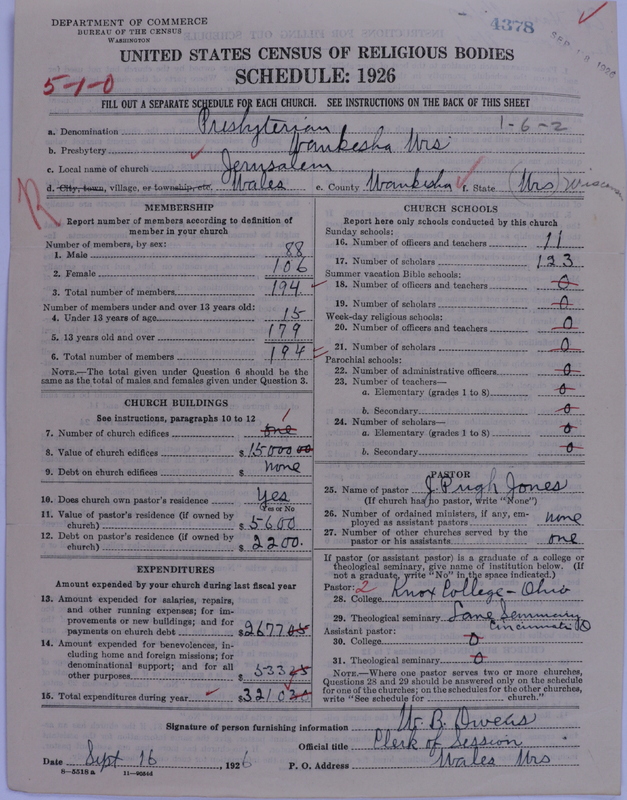 DEPARTMENT OF COMMERCE
BUREAU OF THE CENSUS
WASHINGTON
4378
UNITED STATES CENSUS OF RELIGIOUS BODIES
SCHEDULE: 1926
5-1-0
FILL OUT A SEPARATE SCHEDULE FOR EACH CHURCH. SEE INSTRUCTIONS ON THE BACK OF THIS SHEET
a. Denomination Presbyterian 1-6-2
b. Presbytery Waukesha Wis
c. Local name of church Jerusalem
d. City, town, village, or township, etc. Wales e. County Waukesha f. State (Wis) Wisconsin
MEMBERSHIP
Report number of members according to definition of
member in your church
Number of members, by sex:
1. Male 88
2. Female 106
3. Total number of members 194
Number of members under and over 13 years old:
4. Under 13 years of age 15
5. 13 years old and over 179
6. Total number of members 194
NOTE.—The total given under Question 6 should be
the same as the total of males and females given under Question 3.
CHURCH BUILDINGS
See instructions, paragraphs 10 to 12
7. Number of church edifices one
8. Value of church edifices $15000 00
9. Debt on church edifices $ none
10. Does church own pastor's residence Yes
(Yes or No)
11. Value of pastor's residence (if owned by
church) $5600
12. Debt on pastor's residence (if owned by
church) $2200.
EXPENDITURES
Amount expended by your church during last fiscal year
13. Amount expended for salaries, repairs,
and other running expenses; for im-
provements or new buildings; and for
payments on church debt $2677 05
14. Amount expended for benevolences, in-
cluding home and foreign missions; for
denominational support; and for all
other purposes 533 25
15. Total expenditures during year $3210 30
CHURCH SCHOOLS
Report here only schools conducted by this church
Sunday schools:
16. Number of officers and teachers 11
17. Number of scholars 123
Summer vacation Bible schools:
18. Number of officers and teachers 0
19. Number of scholars 0
Week-day religious schools:
20. Number of officers and teachers 0
21. Number of scholars 0
Parochial schools:
22. Number of administrative officers 0
23. Number of teachers—
a. Elementary (grades 1 to 8) 0
b. Secondary 0
24. Number of scholars—
a. Elementary (grades 1 to 8) 0
b. Secondary 0
PASTOR
25. Name of pastor J. Pugh Jones
(If church has no pastor, write "None")
26. Number of ordained ministers, if any, em-
ployed as assistant pastors none
27. Number of other churches served by the
pastor or his assistants one
If pastor (or assistant pastor) is a graduate of a college or
theological seminary, give name of institution below. (If
not a graduate, write "No" in the space indicated.)
Pastor: 2
28. College Knox College - Ohio
29. Theological seminary Lane Seminary
Cincinnati O
Assistant pastor:
30. College 0
31. Theological seminary 0
NOTE.—Where one pastor serves two or more churches,
Questions 28 and 29 should be answered only on the schedule
for one of the churches; on the schedules for the other churches,
write "See schedule for church."
Signature of person furnishing information W. B. Owens
Official title Clerk of Session
Date Sept 16, 1926 P. O. Address Wales Wis
8-5518a 11-9054d